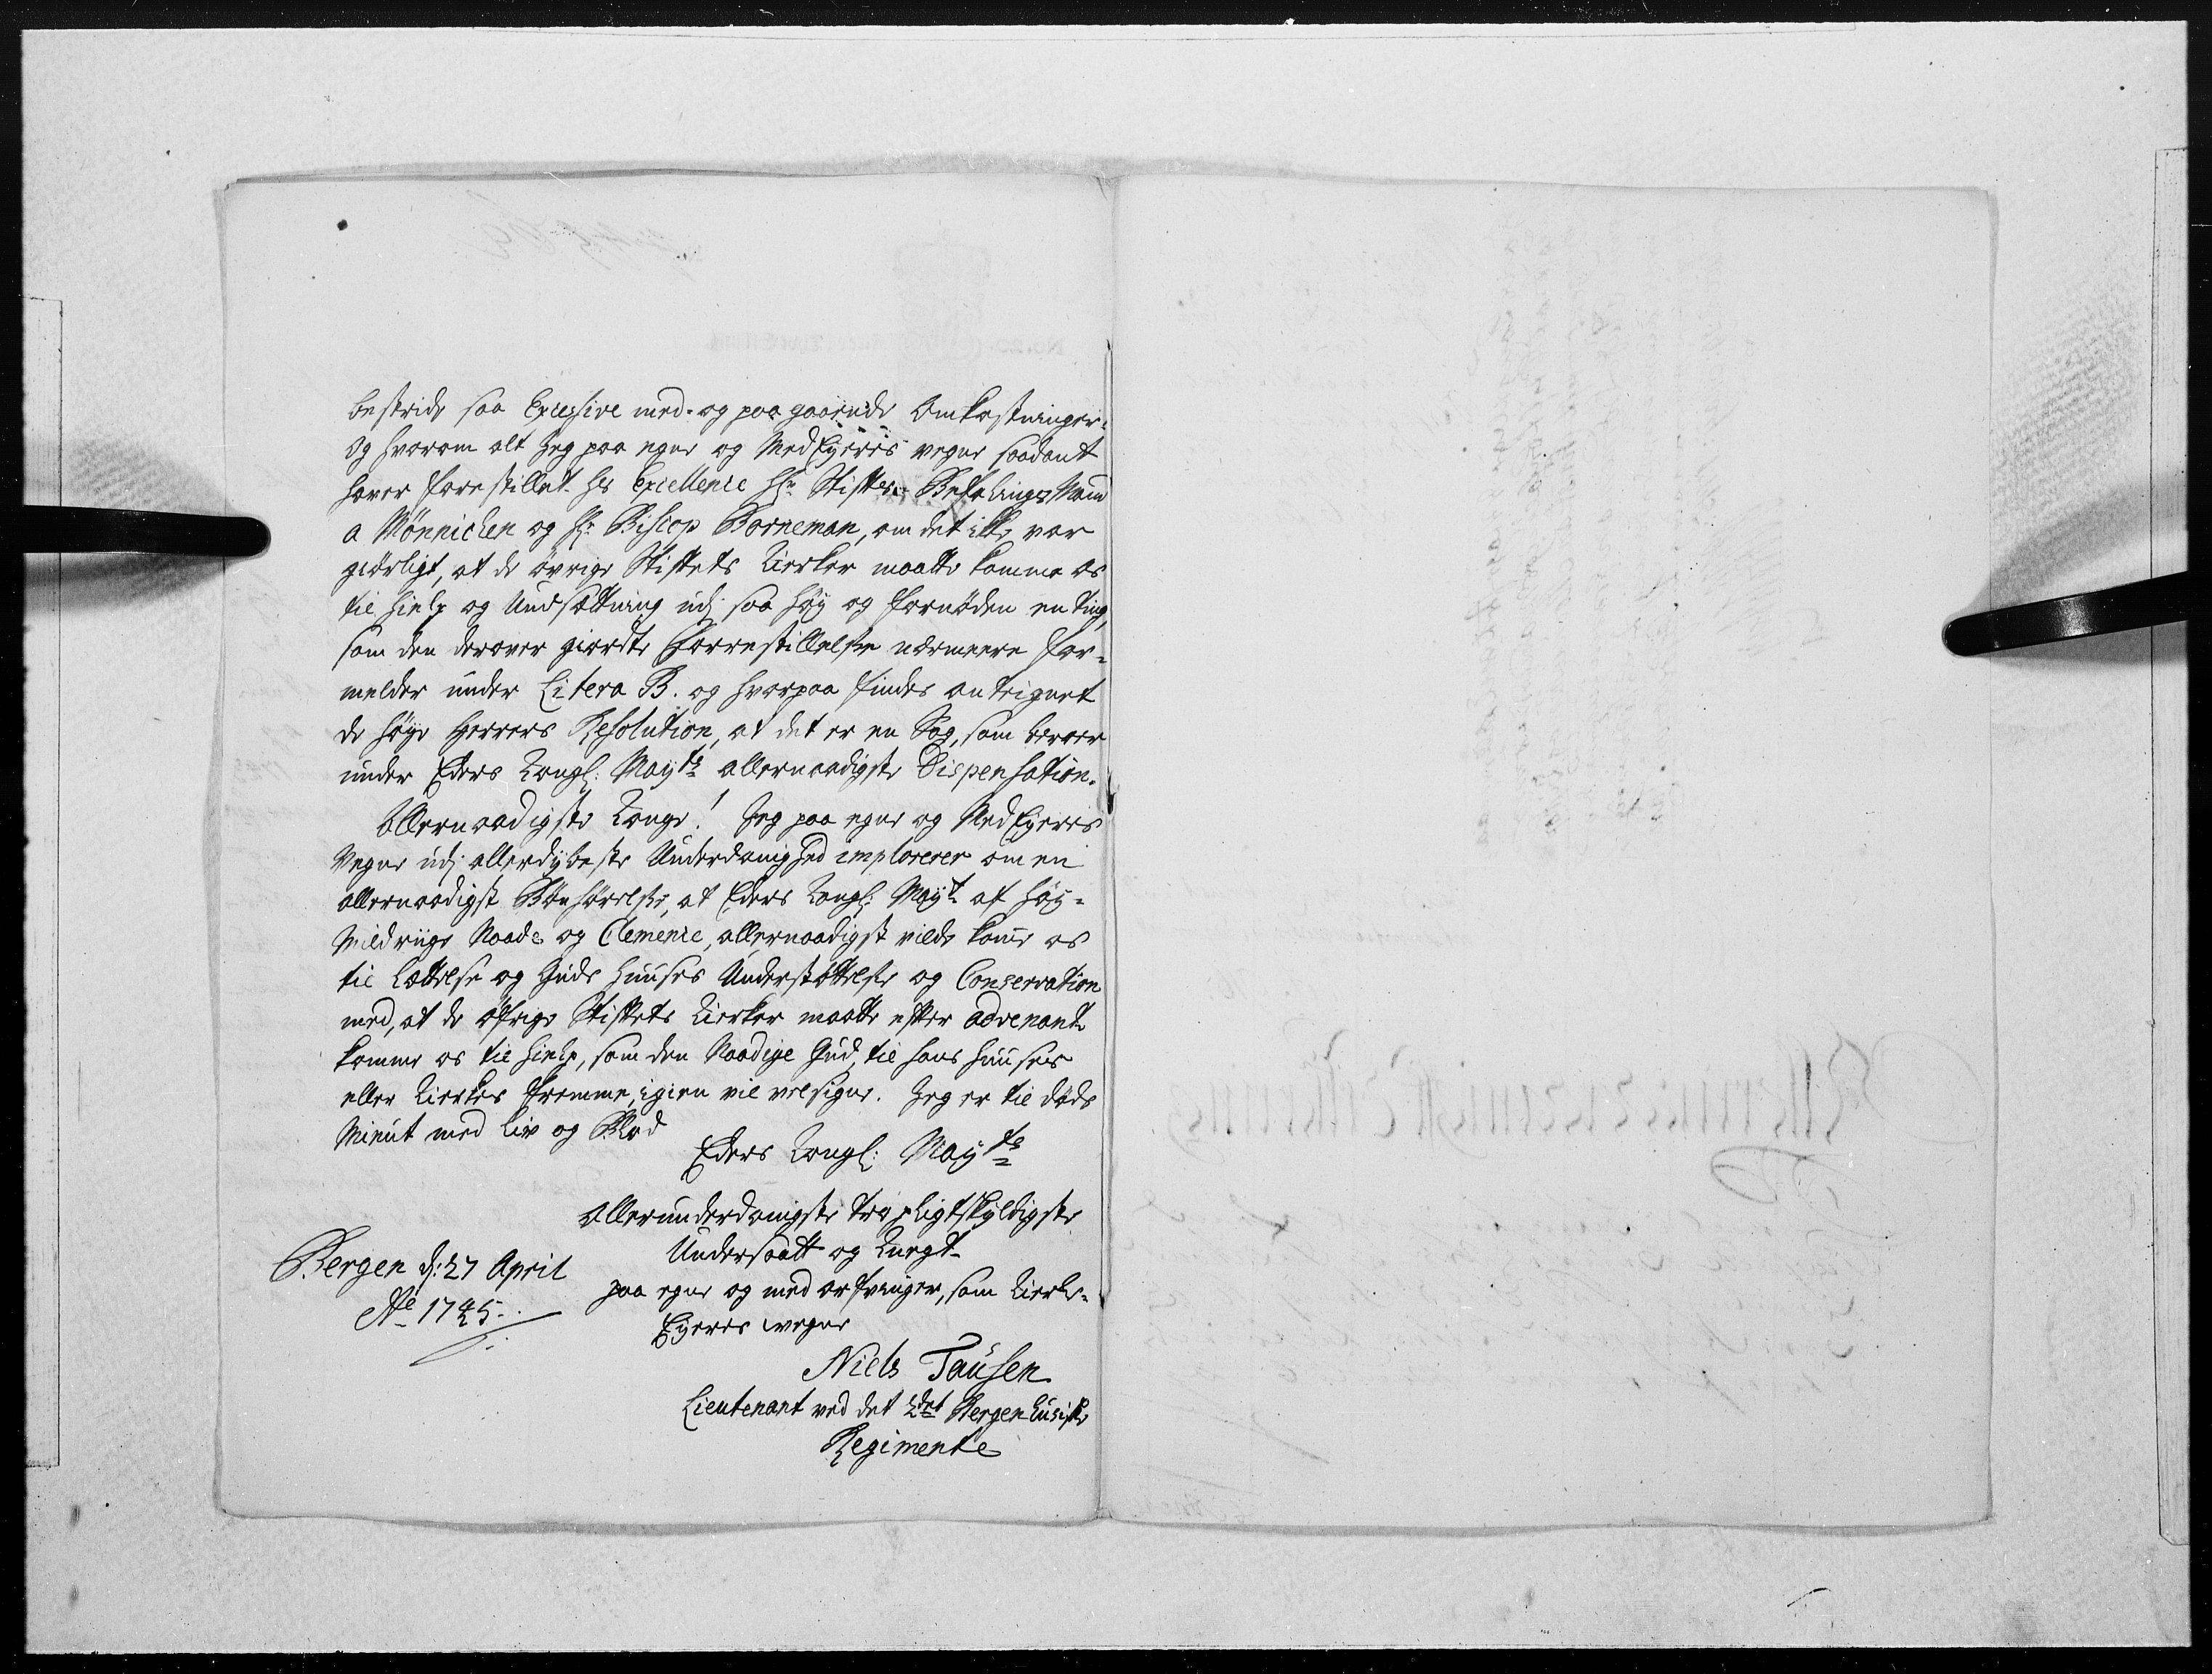 bestride saa Excessive med- og paa gaaende Omkostninger.
Og hvorom alt Jeg paa egne og MedEyeres vegne saadant
haver forestillet Hs Excellence Hr Stifts Befalings Mand
a Mønnichen og Hr Biscop Borneman, om det ikke var
giørligt, at de øvrige Stiftets Kierker maatte komme os
til Hielp og Undsætning udj saa høy og fornøden en Ting,
som den derover giorde Forrestillelse nærmere for-
melder under Litera B. og hvorpaa findes antegnet
de høye Herrers Resolution, at det er en Sag, som beroer
under Eders Kongl: Mayts allernaadigste Dispensation.
Allernaadigste Konge! Jeg paa egne og MedEyeres
Vegne udj allerdybeste Underdanighed implorerer om en
allernaadigst Bønhørelse, at Eders Kongl: Mayt af høy-
Mildrige Naade og Clemence, allernaadigst vilde komme os
til Lættelse og Guds Huuses Understøttelse og Conservation
med, at de øfrige Stiftets Kierker maatte efter advenant
komme os til Hielp, som den Naadige Gud, til hans Huuses
eller Kierkes fremme, igien vil velsigne. Jeg er til døds
Minut med Liv og Blod
Eders Kongl: Mayts
Allerunderdanigste troe pligtskyldigste
Undersaatt og Knegt
Bergen d: 27 April
Ao 1745.
paa egne og med arfvinger, som Kierke-
Eyeres vegne
Niels Tausen
Lieutenant ved det 2det Bergenhusiske
Regimente